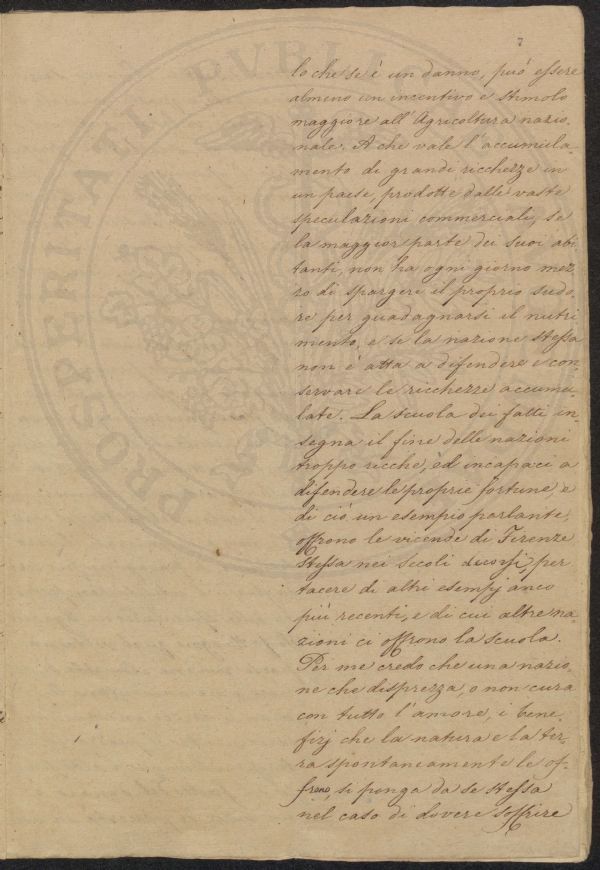 7
lo che se è un danno, può essere
almeno un incentivo e stimolo
maggiore all'Agricoltura nazio-
nale. A che vale l'accumula-
mento di grandi ricchezze in
un paese, prodotte dalle vaste
speculazioni commerciali, se
la maggior parte dei suoi abi-
tanti, non ha ogni giorno mez-
zo di spargere il proprio sudo-
re per guadagnarsi il nutri-
mento, e se la nazione stessa
non è atta a difendere e con-
servare le ricchezze accumu-
late. La scuola dei fatti in-
segna il fine delle nazioni
troppo ricche, ed incapaci a
difendere le proprie fortune, e
di ciò un esempio parlante,
offrono le vicende di Firenze
stessa nei secoli decorsi, per
tacere di altri esempj anco
più recenti, e di cui altre na-
zioni ci offrono la scuola.
Per me credo che una nazio-
ne che disprezza, o non cura
con tutto l'amore, i bene-
fizj che la natura e la ter-
ra spontaneamente le of-
frono, si ponga da se stessa
nel caso di dovere soffrire
PROSPERITATI PVBLIC